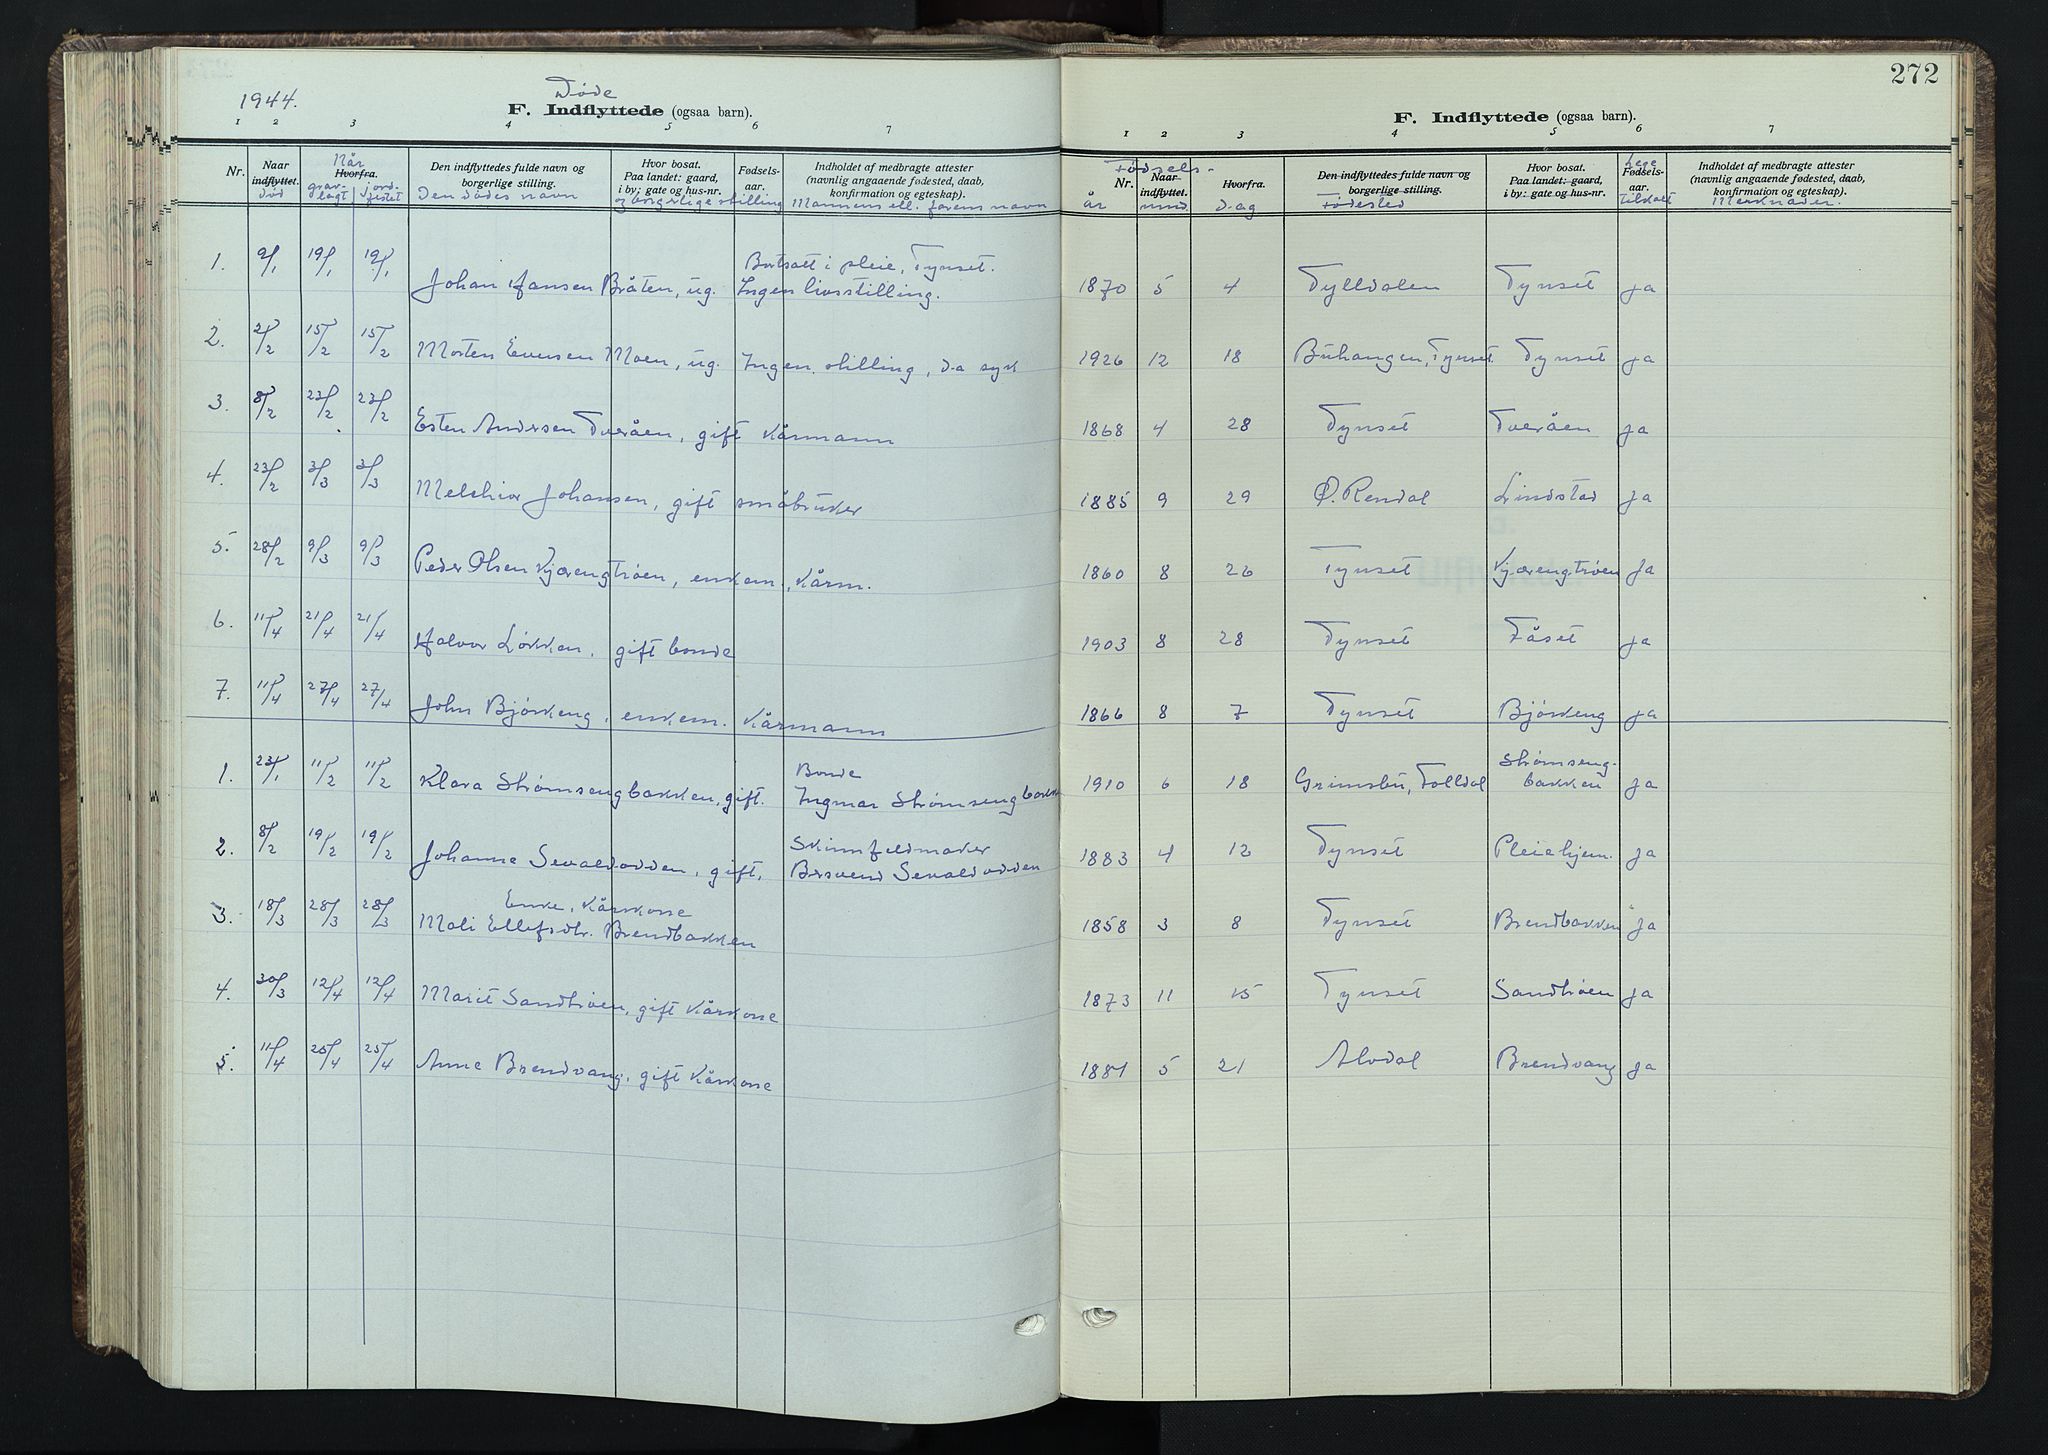 272
1944.
Døde
F. Indflyttede (ogsaa barn).
1 2 3 4 5 6 7
Nr. Naar indflyttet. død
Når Hvorfra. gravlagt jordfestet
Den indflyttedes fulde navn og borgerlige stilling. Den dødes navn
Hvor bosat. Paa landet: gaard, i by: gate og hus-nr. og borgerlige stilling
Fødselsaar.
Indholdet af medbragte attester (navnlig angaaende fødested, daab, konfirmation og egteskap). Mannens ell. farens navn
F. Indflyttede (ogsaa barn).
1 2 3 4 5 6 7
Fødsels-
Nr. år
Naar indflyttet. mnd.
Hvorfra. dag
Den indflyttedes fulde navn og borgerlige stilling. Fødested
Hvor bosat. Paa landet: gaard, i by: gate og hus-nr.
Lege Fødselsaar. tilkalt
Indholdet af medbragte attester (navnlig angaaende fødested, daab, konfirmation og egteskap). Merknader.
1. 9/1 19/1 19/1 Johan Hansen Bråten, ug. Bortsatt i pleie, Tynset. Ingen livsstilling. 1870 5 4 Tylldalen Tynset ja
2. 2/2 15/2 15/2 Morten Evensen Moen, ug. Ingen stilling, da syk 1926 12 18 Buhangen, Tynset Tynset ja
3. 8/2 23/2 23/2 Esten Andersen Tveråen, gift kårmann 1868 4 28 Tynset Tveråen ja
4. 23/2 3/3 3/3 Melchior Johansen, gift småbruker 1885 9 29 Ø. Rendal Lindstad ja
5. 28/2 9/3 9/3 Peder Olsen Kjærengtrøen, enkem., kårm. 1860 8 26 Tynset Kjærengtrøen ja
6. 11/4 21/4 21/4 Halvor Løkken, gift bonde 1903 8 28 Tynset Fåset ja
7. 11/4 27/4 27/4 John Bjørkeng, enkem. kårmann 1866 8 7 Tynset Bjørkeng ja
1. 23/1 11/2 11/2 Klara Strømsengbakken, gift. Bonde Ingmar Strømsengbakk 1910 6 18 Grimsbu, Folldal Strømseng-bakken ja
2. 8/2 19/2 19/2 Johanne Sevaldodden, gift, Skinnfeldmaker Bersvend Sevaldodden 1883 4 12 Tynset Pleiehjem. ja
3. 18/3 28/3 28/3 Enke, kårkone Mali Ellefsdtr. Brendbakken 1858 3 8 Tynset Brendbakken ja
4. 30/3 12/4 12/4 Marit Sandtrøen, gift kårkone 1873 11 15 Tynset Sandtrøen ja
5. 11/4 25/4 25/4 Anne Brendvang, gift kårkone 1881 5 21 Alvdal Brendvang ja